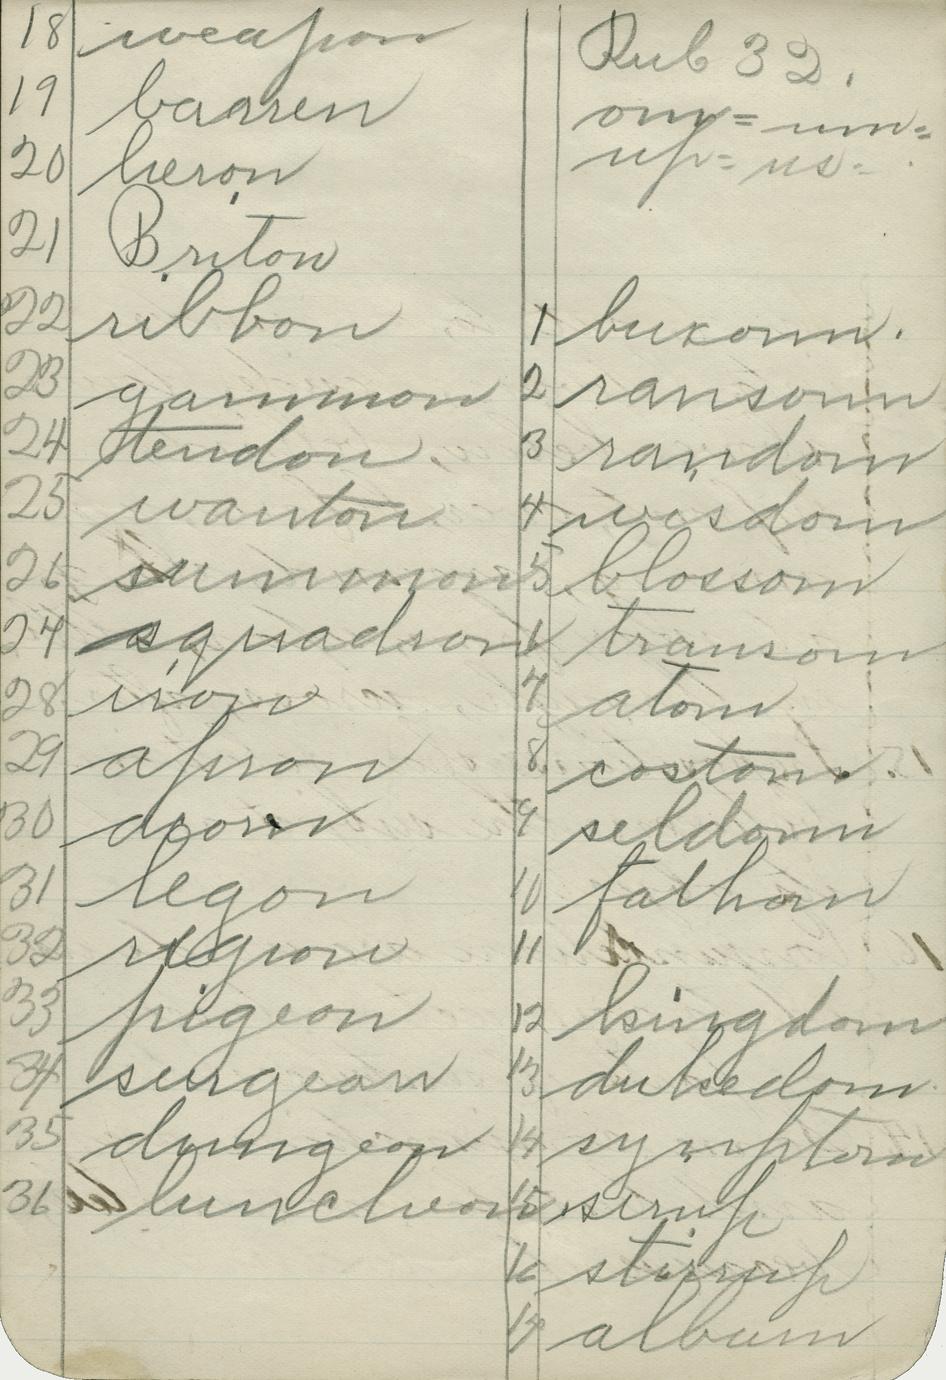 18 weapon
19 barren
20 heron
21 Briton
22 ribbon
23 gammon
24 tendon
25 wanton
26 summons
24 squadron
28 iron
29 apron
30
31 legon
32 region
33 pigeon
34 surgeon
35 dungeon
36 luncheon
Rub 32.
om= um=
up= us=
1 buxom.
2 ransom
3 random
4 wisdom
5 blossom
6 transom
7 atom
8 costom.
9 seldom
10 fathom
11
12 kingdom
13 dukedom
14 symptom
15 sirup
16 stirrup
17 album